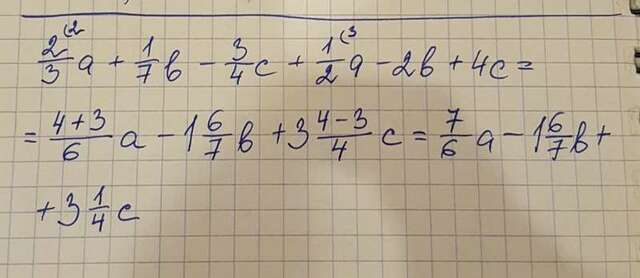 2/3⁽² a + 1/7 b − 3/4 c + 1/2⁽³ a − 2b + 4c =
= (4+3)/6 a − 1 6/7 b + 3 (4−3)/4 c = 7/6 a − 1 6/7 b +
+ 3 1/4 c